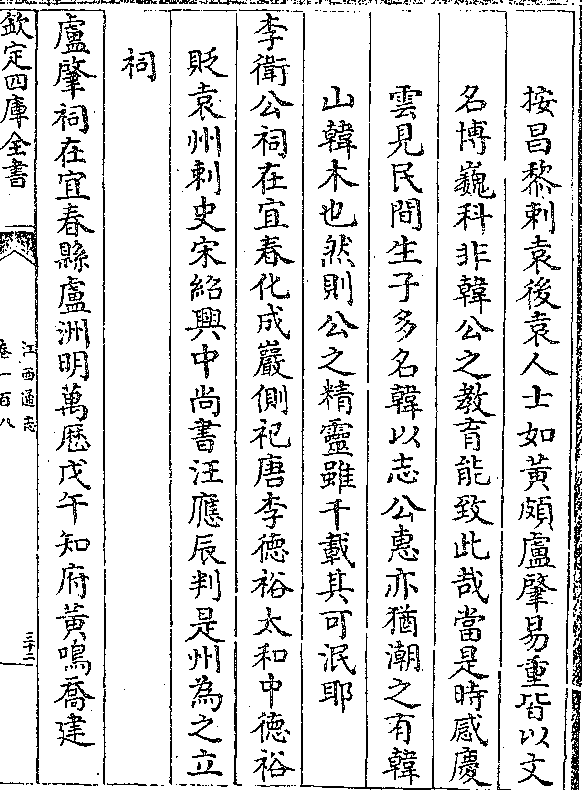 按昌黎刺袁後袁人士如黃頗盧肇易重皆以文
名博巍科非韓公之教育能致此哉當是時感慶
雲見民間生子多名韓以志公惠亦猶潮之有韓
山韓木也然則公之精靈雖千載其可泯耶
李衛公祠在宜春化成巖側祀唐李德裕太和中德裕
貶袁州刺史宋紹興中尚書汪應辰判是州為之立
祠
盧肇祠在宜春縣盧洲明萬厯戊午知府黃鳴喬建
欽定四庫全書
江西通志
卷一百八
三十二